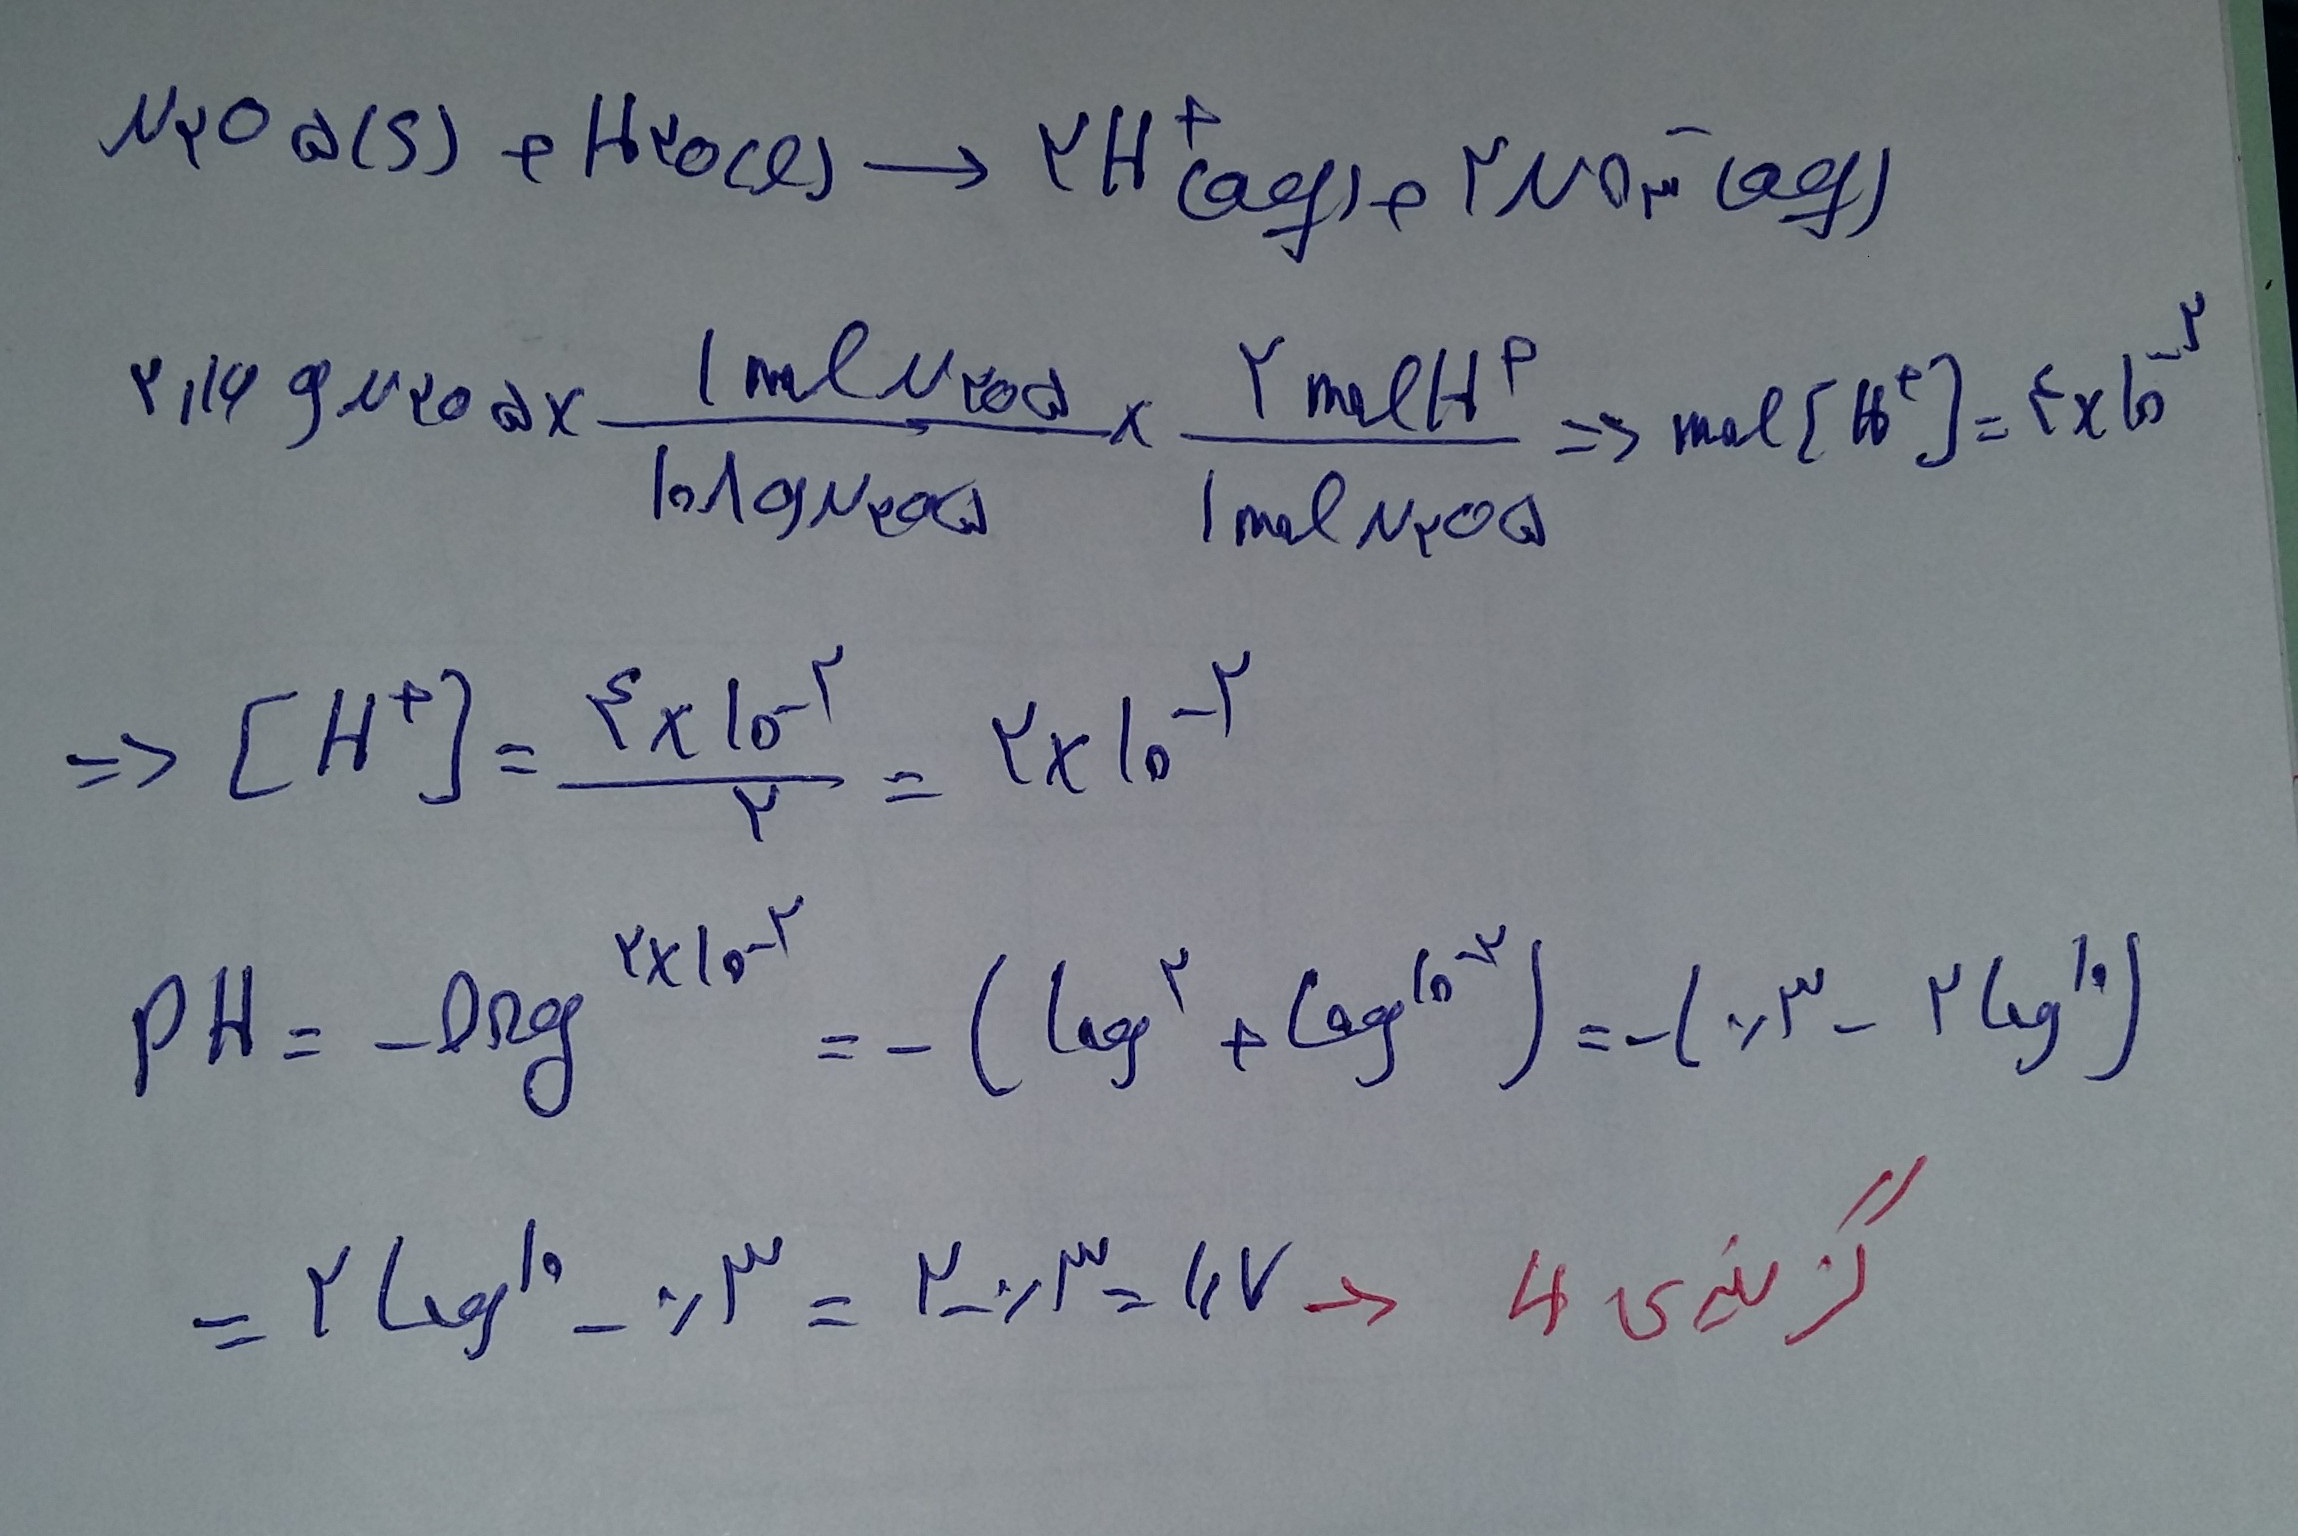 N۲O۵(s) + H۲O(l) → ۲H⁺(aq) + ۲NO۳⁻(aq)
۲,۱۶ g N۲O۵ × ۱ mol N۲O۵ / ۱۰۸ g N۲O۵ × ۲ mol H⁺ / ۱ mol N۲O۵ => mol [H⁺] = ۴×۱۰^-۲
=> [H⁺] = ۴×۱۰^-۲ / ۲ = ۲×۱۰^-۲
PH = -log ۲×۱۰^-۲ = -(log ۲ + log ۱۰^-۲) = -(۰,۳ - ۲ log ۱۰)
= ۲ log ۱۰ - ۰,۳ = ۲ - ۰,۳ = ۱,۷ → گزینه‌ی 4